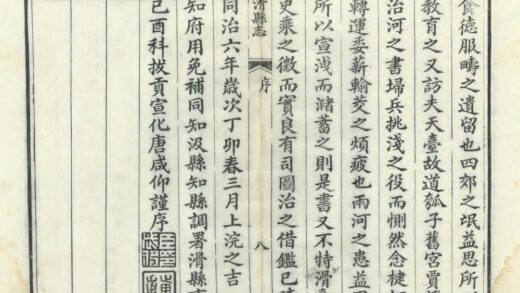 食德服疇之遺留也四郊之氓益思所
教育之又訪夫天臺故道瓠子舊宮賈
治河之書埽兵挑淺之役而惻然念楗
轉運委薪輸茭之煩疲也兩河之患益
所以宣洩而瀦蓄之則是書又不特滑
史乘之徵而實良有司圖治之借鑑已
滑縣志 序 八
同治六年歲次丁卯春三月上浣之吉
知府用免補同知汲縣知縣調署滑縣
己酉科拔貢宣化唐咸仰謹序